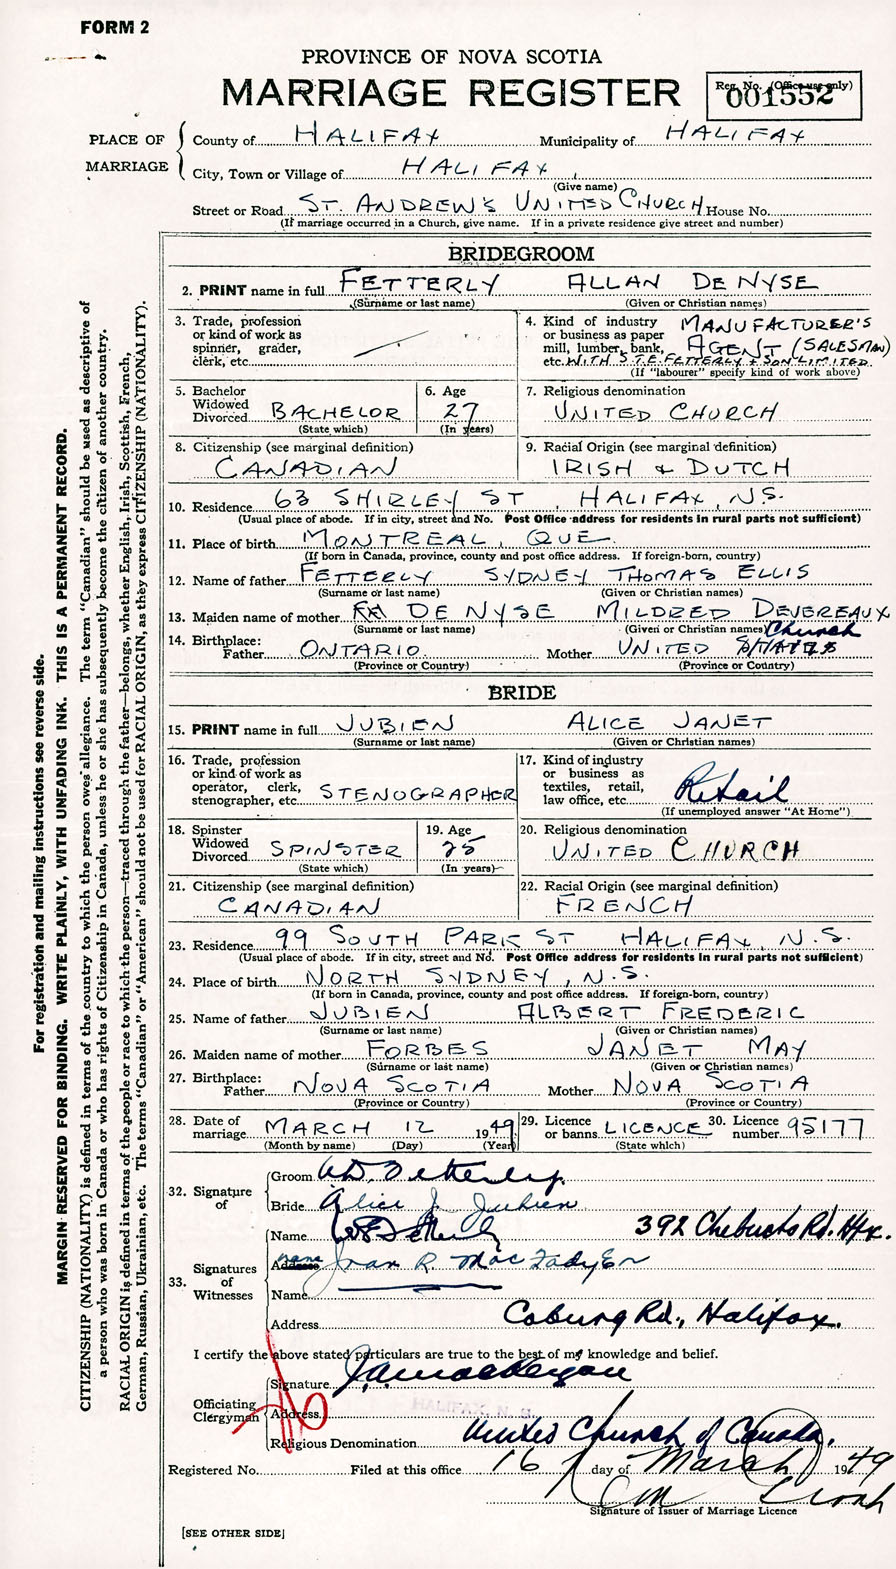 FORM 2
PROVINCE OF NOVA SCOTIA
MARRIAGE REGISTER
Reg. No. (Office use only)
001552
PLACE OF MARRIAGE
County of HALIFAX Municipality of HALIFAX
City, Town or Village of HALIFAX
(Give name)
Street or Road ST. ANDREW'S UNITED CHURCH House No.
(If marriage occurred in a Church, give name. If in a private residence give street and number)
BRIDEGROOM
2. PRINT name in full FETTERLY ALLAN DE NYSE
(Surname or last name) (Given or Christian names)
3. Trade, profession
or kind of work as
spinner, grader,
clerk, etc.
4. Kind of industry MANUFACTURER'S
or business as paper
mill, lumber, bank, AGENT (SALESMAN)
etc. WITH S.T.E. FETTERLY & SON LIMITED
(If "labourer" specify kind of work above)
5. Bachelor
Widowed
Divorced BACHELOR
(State which)
6. Age
27
(In years)
7. Religious denomination
UNITED CHURCH
8. Citizenship (see marginal definition)
CANADIAN
9. Racial Origin (see marginal definition)
IRISH & DUTCH
10. Residence 63 SHIRLEY ST, HALIFAX, N.S.
(Usual place of abode. If in city, street and No. Post Office address for residents in rural parts not sufficient)
11. Place of birth MONTREAL, QUE.
(If born in Canada, province, county and post office address. If foreign-born, country)
12. Name of father FETTERLY SYDNEY THOMAS ELLIS
(Surname or last name) (Given or Christian names)
13. Maiden name of mother DE NYSE MILDRED DEVEREAUX
(Surname or last name) (Given or Christian names) Church
14. Birthplace:
Father ONTARIO Mother UNITED STATES
(Province or Country) (Province or Country)
BRIDE
15. PRINT name in full JUBIEN ALICE JANET
(Surname or last name) (Given or Christian names)
16. Trade, profession
or kind of work as
operator, clerk,
stenographer, etc. STENOGRAPHER
17. Kind of industry
or business as
textiles, retail,
law office, etc. Retail
(If unemployed answer "At Home")
18. Spinster
Widowed
Divorced SPINSTER
(State which)
19. Age
25
(In years)
20. Religious denomination
UNITED CHURCH
21. Citizenship (see marginal definition)
CANADIAN
22. Racial Origin (see marginal definition)
FRENCH
23. Residence 99 SOUTH PARK ST HALIFAX, N.S.
(Usual place of abode. If in city, street and No. Post Office address for residents in rural parts not sufficient)
24. Place of birth NORTH SYDNEY, N.S.
(If born in Canada, province, county and post office address. If foreign-born, country)
25. Name of father JUBIEN ALBERT FREDERIC
(Surname or last name) (Given or Christian names)
26. Maiden name of mother FORBES JANET MAY
(Surname or last name) (Given or Christian names)
27. Birthplace:
Father NOVA SCOTIA Mother NOVA SCOTIA
(Province or Country) (Province or Country)
28. Date of
marriage MARCH 12 1949
(Month by name) (Day) (Year)
29. Licence
or banns LICENCE
(State which)
30. Licence
number 95177
32. Signature of
Groom A.D. Fetterly.
Bride Alice J. Jubien
33. Signatures of Witnesses
Name 392 Chebucto Rd. Hfx.
Address name Joan R. MacFadyen
Name
Address Coburg Rd., Halifax.
I certify the above stated particulars are true to the best of my knowledge and belief.
Officiating Clergyman
Signature
Address HALIFAX, N. S.
Religious Denomination United Church of Canada.
Registered No. Filed at this office 16 day of March 1949
Signature of Issuer of Marriage Licence
[SEE OTHER SIDE]
For registration and mailing instructions see reverse side.
MARGIN RESERVED FOR BINDING. WRITE PLAINLY, WITH UNFADING INK. THIS IS A PERMANENT RECORD.
CITIZENSHIP (NATIONALITY) is defined in terms of the country to which the person owes allegiance. The term "Canadian" should be used as descriptive of
a person who was born in Canada or who has rights of Citizenship in Canada, unless he or she has subsequently become the citizen of another country.
RACIAL ORIGIN is defined in terms of the people or race to which the person—traced through the father—belongs, whether English, Irish, Scottish, French,
German, Russian, Ukrainian, etc. The terms "Canadian" or "American" should not be used for RACIAL ORIGIN, as they express CITIZENSHIP (NATIONALITY).